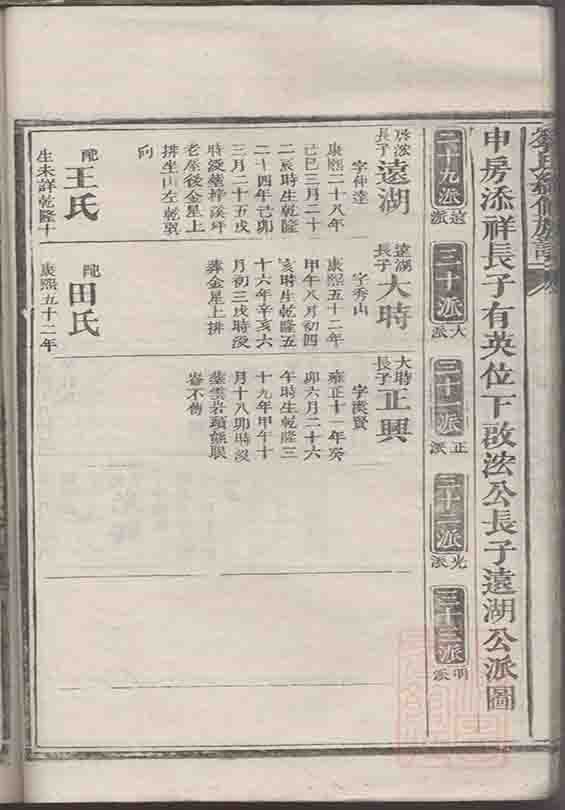 申房添祥長子有英位下啟浤公長子遠湖公派圖
二十九派
遠派
三十派
大派
三十一派
正派
三十二派
光派
三十三派
明派
啟浤長子遠湖
字仲達
康熙二十八年
己巳三月二十
二亥時生乾隆
二十四年己卯
三月二十五戌
時沒葬梓溪坪
老屋後金星上
排坐山左乾巽
向
配王氏
生未詳乾隆十
遠湖長子大時
字秀山
康熙五十二年
甲午八月初四
亥時生乾隆五
十六年辛亥六
月初三戌時沒
葬金星上排
配田氏
康熙五十二年
大時長子正興
字漢賢
雍正十一年癸
卯六月二十六
午時生乾隆三
十九年甲午十
月十八卯時沒
葬雲岩頭熊眼